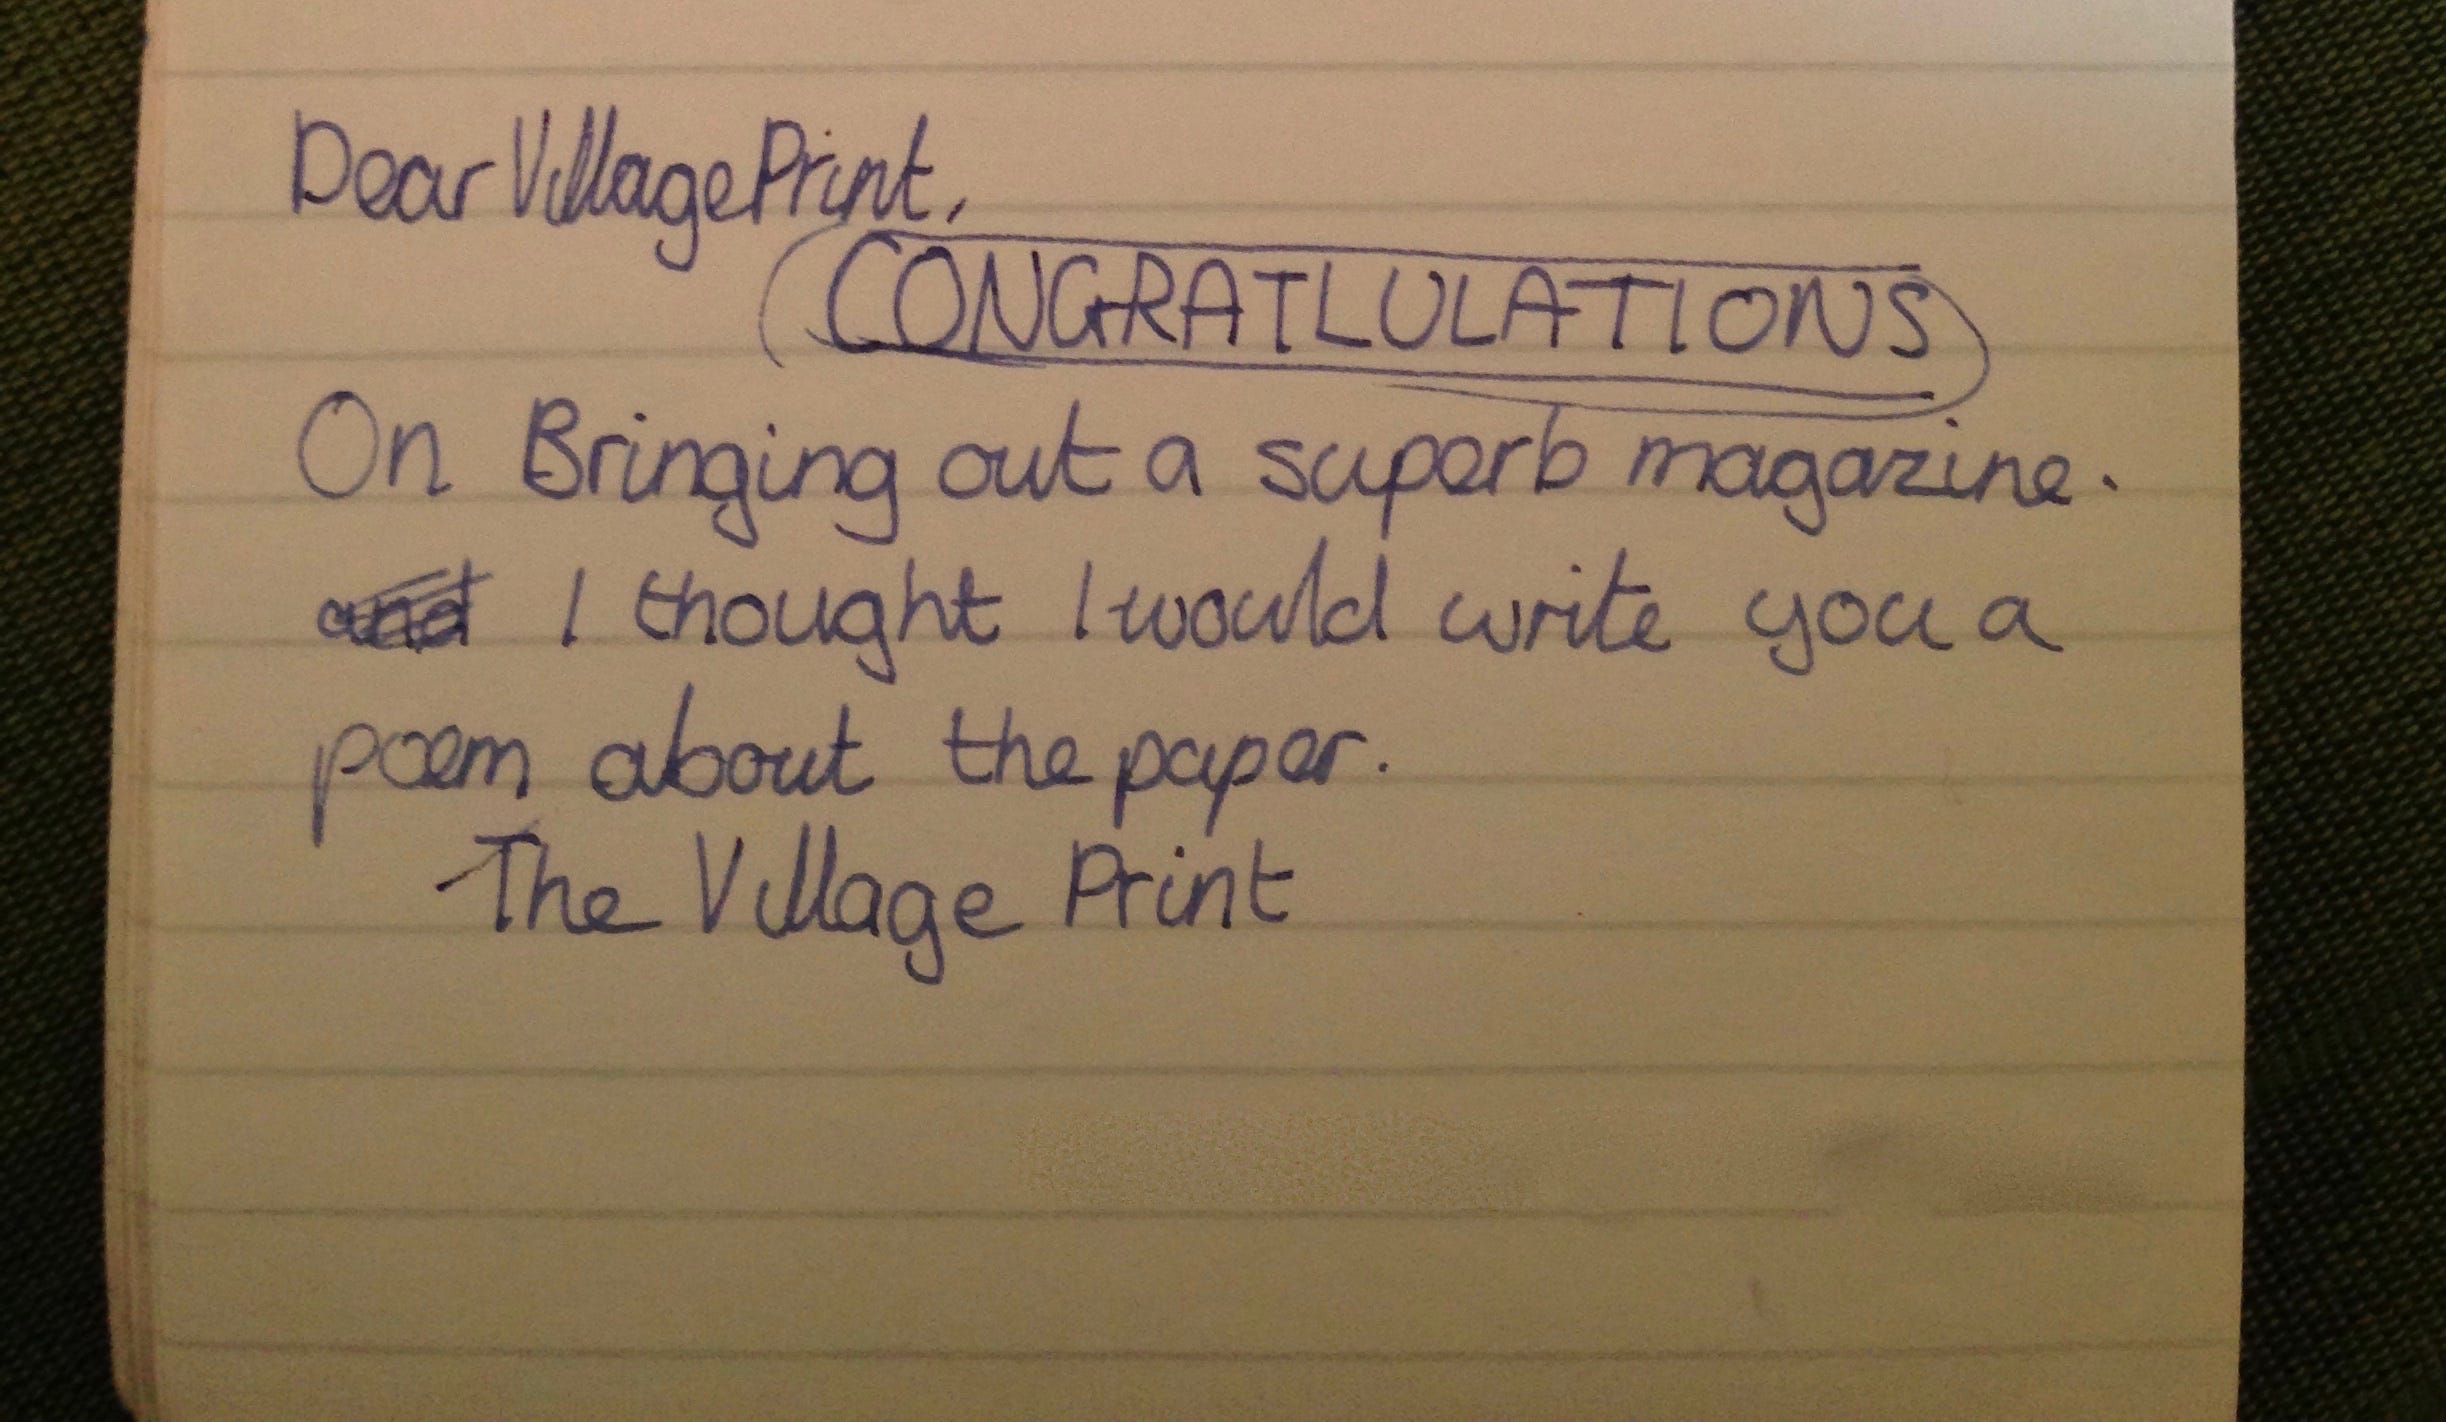 Dear Village Print,
CONGRATLULATIONS
On Bringing out a superb magazine.
and I thought I would write you a
poem about the paper.
The Village Print